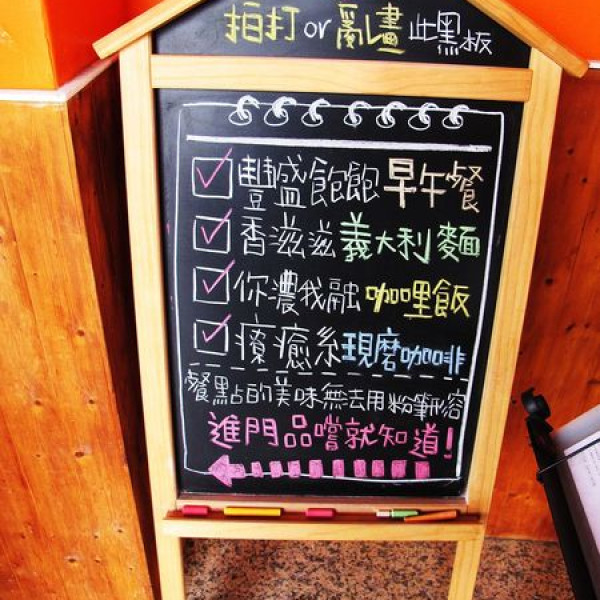 拍打 or 亂畫 此黑板
豐盛飽飽早午餐
香滋滋義大利麵
你濃我融咖哩飯
療癒系現磨咖啡
餐點的美味無法用粉筆形容
進門品嚐就知道!